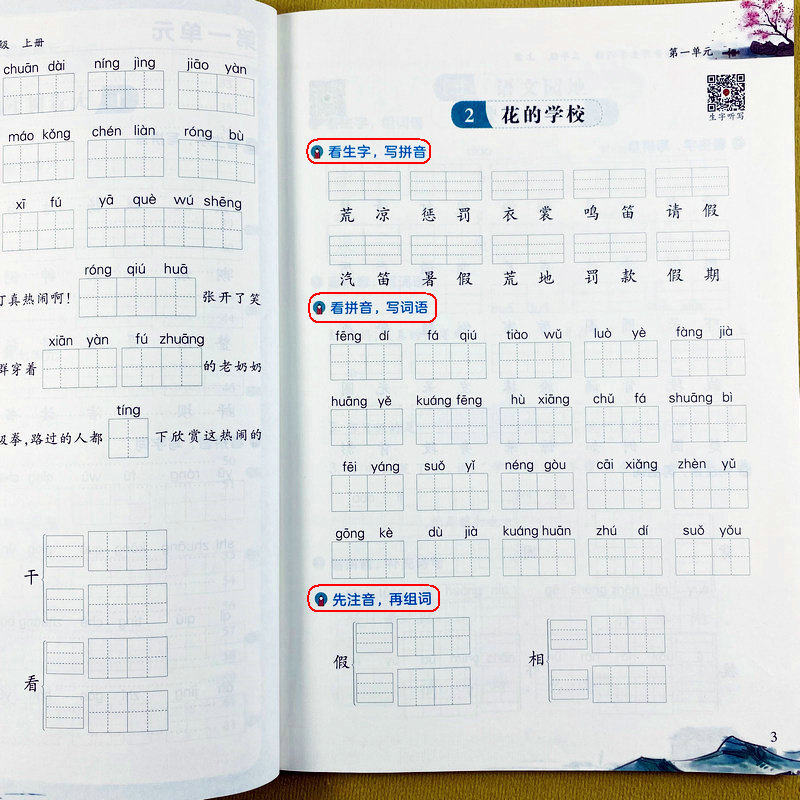 级 上册
chuān dài níng jìng jiāo yàn
máo kǒng chén liàn róng bù
xī fú yā què wú shēng
róng qiú huā
真热闹啊! 张开了笑
xiān yàn fú zhuāng
群穿着 的老奶奶
tíng
极拳,路过的人都 下欣赏这热闹的
干
看
第一单元
生字听写
2 花的学校
看生字，写拼音
荒凉 惩罚 衣裳 鸣笛 请假
汽笛 暑假 荒地 罚款 假期
看拼音，写词语
fēng dí fá qiú tiào wǔ luò yè fàng jià
huāng yě kuáng fēng hù xiāng chǔ fá shuāng bì
fēi yáng suǒ yǐ néng gòu cāi xiǎng zhèn yǔ
gōng kè dù jià kuáng huān zhú dí suǒ yǒu
先注音，再组词
假 相
3